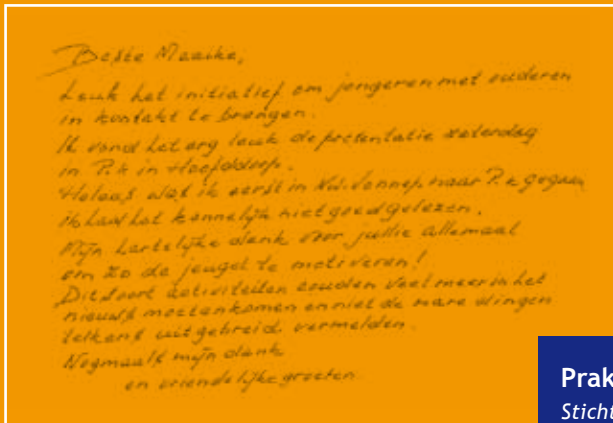 Beste Maaike,
Leuk het initiatief om jongeren met ouderen
in kontakt te brengen.
Ik vond het erg leuk de presentatie zaterdag
in P.k in Hoofddorp.
Helaas was ik eerst in Nw. Vennep naar P.k gegaan
ik had het kennelijk niet goed gelezen.
Mijn hartelijke dank voor jullie allemaal
om zo de jeugd te motiveren!
Dit soort activiteiten zouden veel meer in het
nieuws moeten komen en niet de nare dingen
telkens uitgebreid vermelden.
Nogmaals mijn dank
en vriendelijke groeten
Prak
Sticht